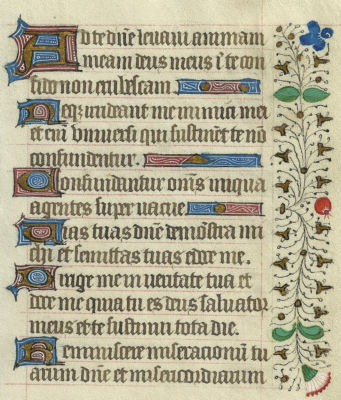 Ad te dn̄e levavi animam
meam deus meus ī te con
fido non erubescam
Neqꝫ irrideant me inimici mei
et enī vniversi qui sustinēt te nō
confundentur.
Confundantur om̄s iniqua
agentes super vacue
Vias tuas dn̄e demōstra mi
chi et semitas tuas edoce me.
Dirige me in veritate tua et
doce me quia tu es deus salvator
meus et te sustinui tota die.
Reminiscere miseracionū tu
arum dn̄e et misericordiarum